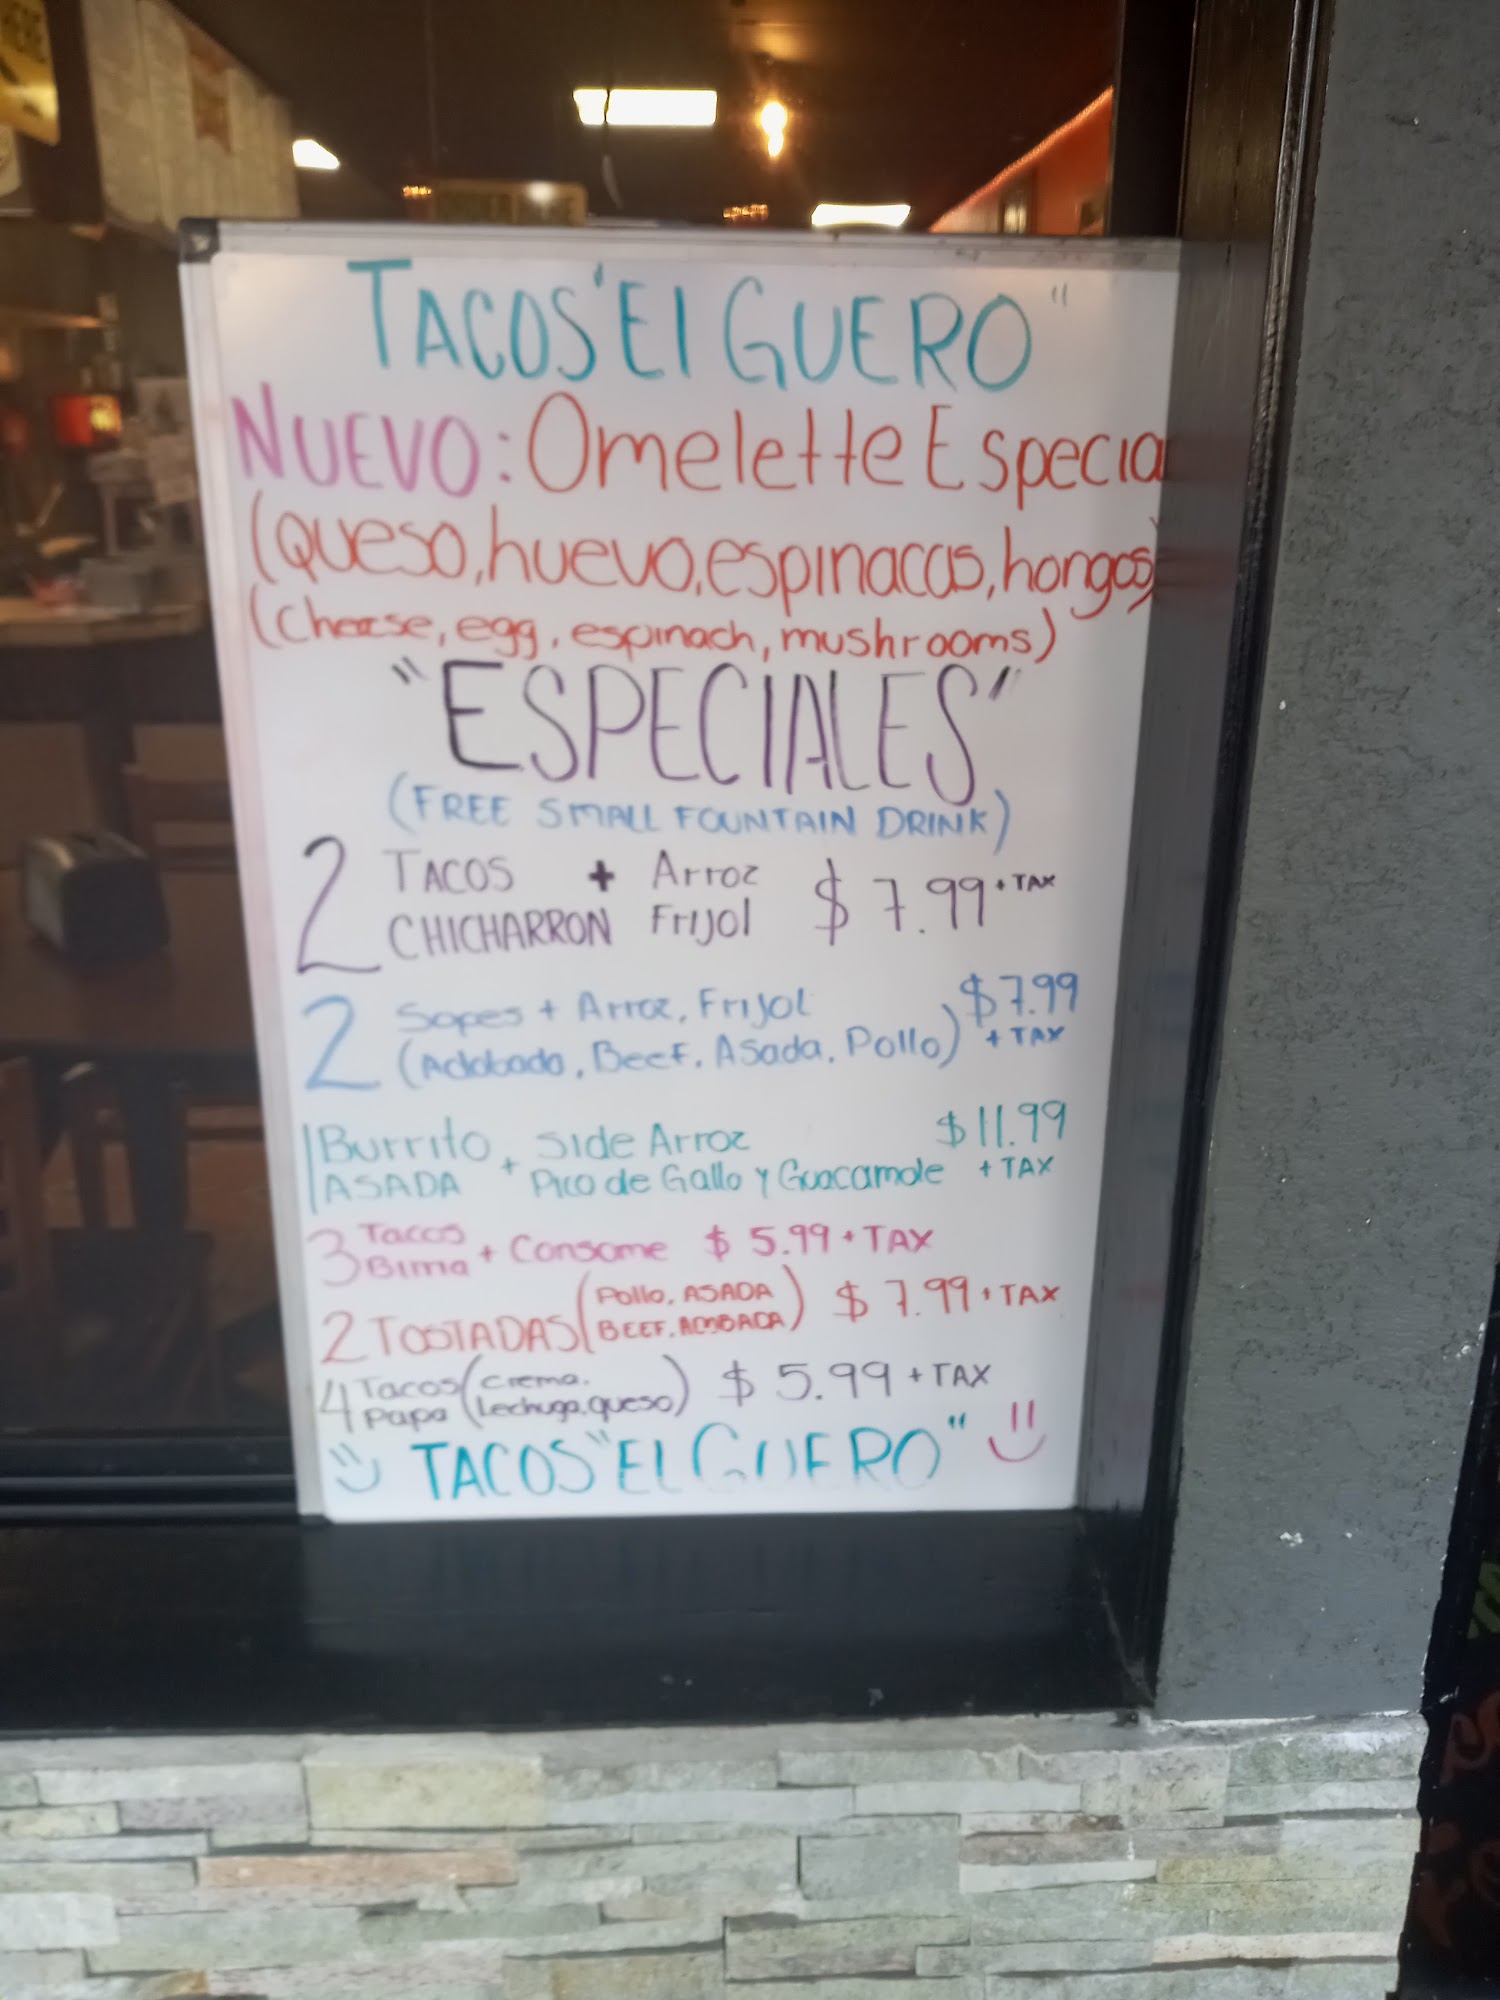 TACOS "El GUERO"
NUEVO: Omelette Especia
(queso, huevo, espinacas, hongos)
(cheese, egg, espinach, mushrooms)
"ESPECIALES"
(FREE SMALL FOUNTAIN DRINK)
2 TACOS + Arroz $7.99 + TAX
CHICHARRON Frijol
2 Sopes + Arroz, Frijol $7.99
(Adobada, Beef, Asada, Pollo) + TAX
1 Burrito + Side Arroz $11.99
ASADA Pico de Gallo y Guacamole + TAX
3 Tacos + Consome $5.99 + TAX
Birria
2 TOSTADAS (Pollo, ASADA $7.99 + TAX
BEEF, ADOBADA)
4 Tacos (Crema, $5.99 + TAX
Papa Lechuga, queso)
TACOS "EL GUERO"